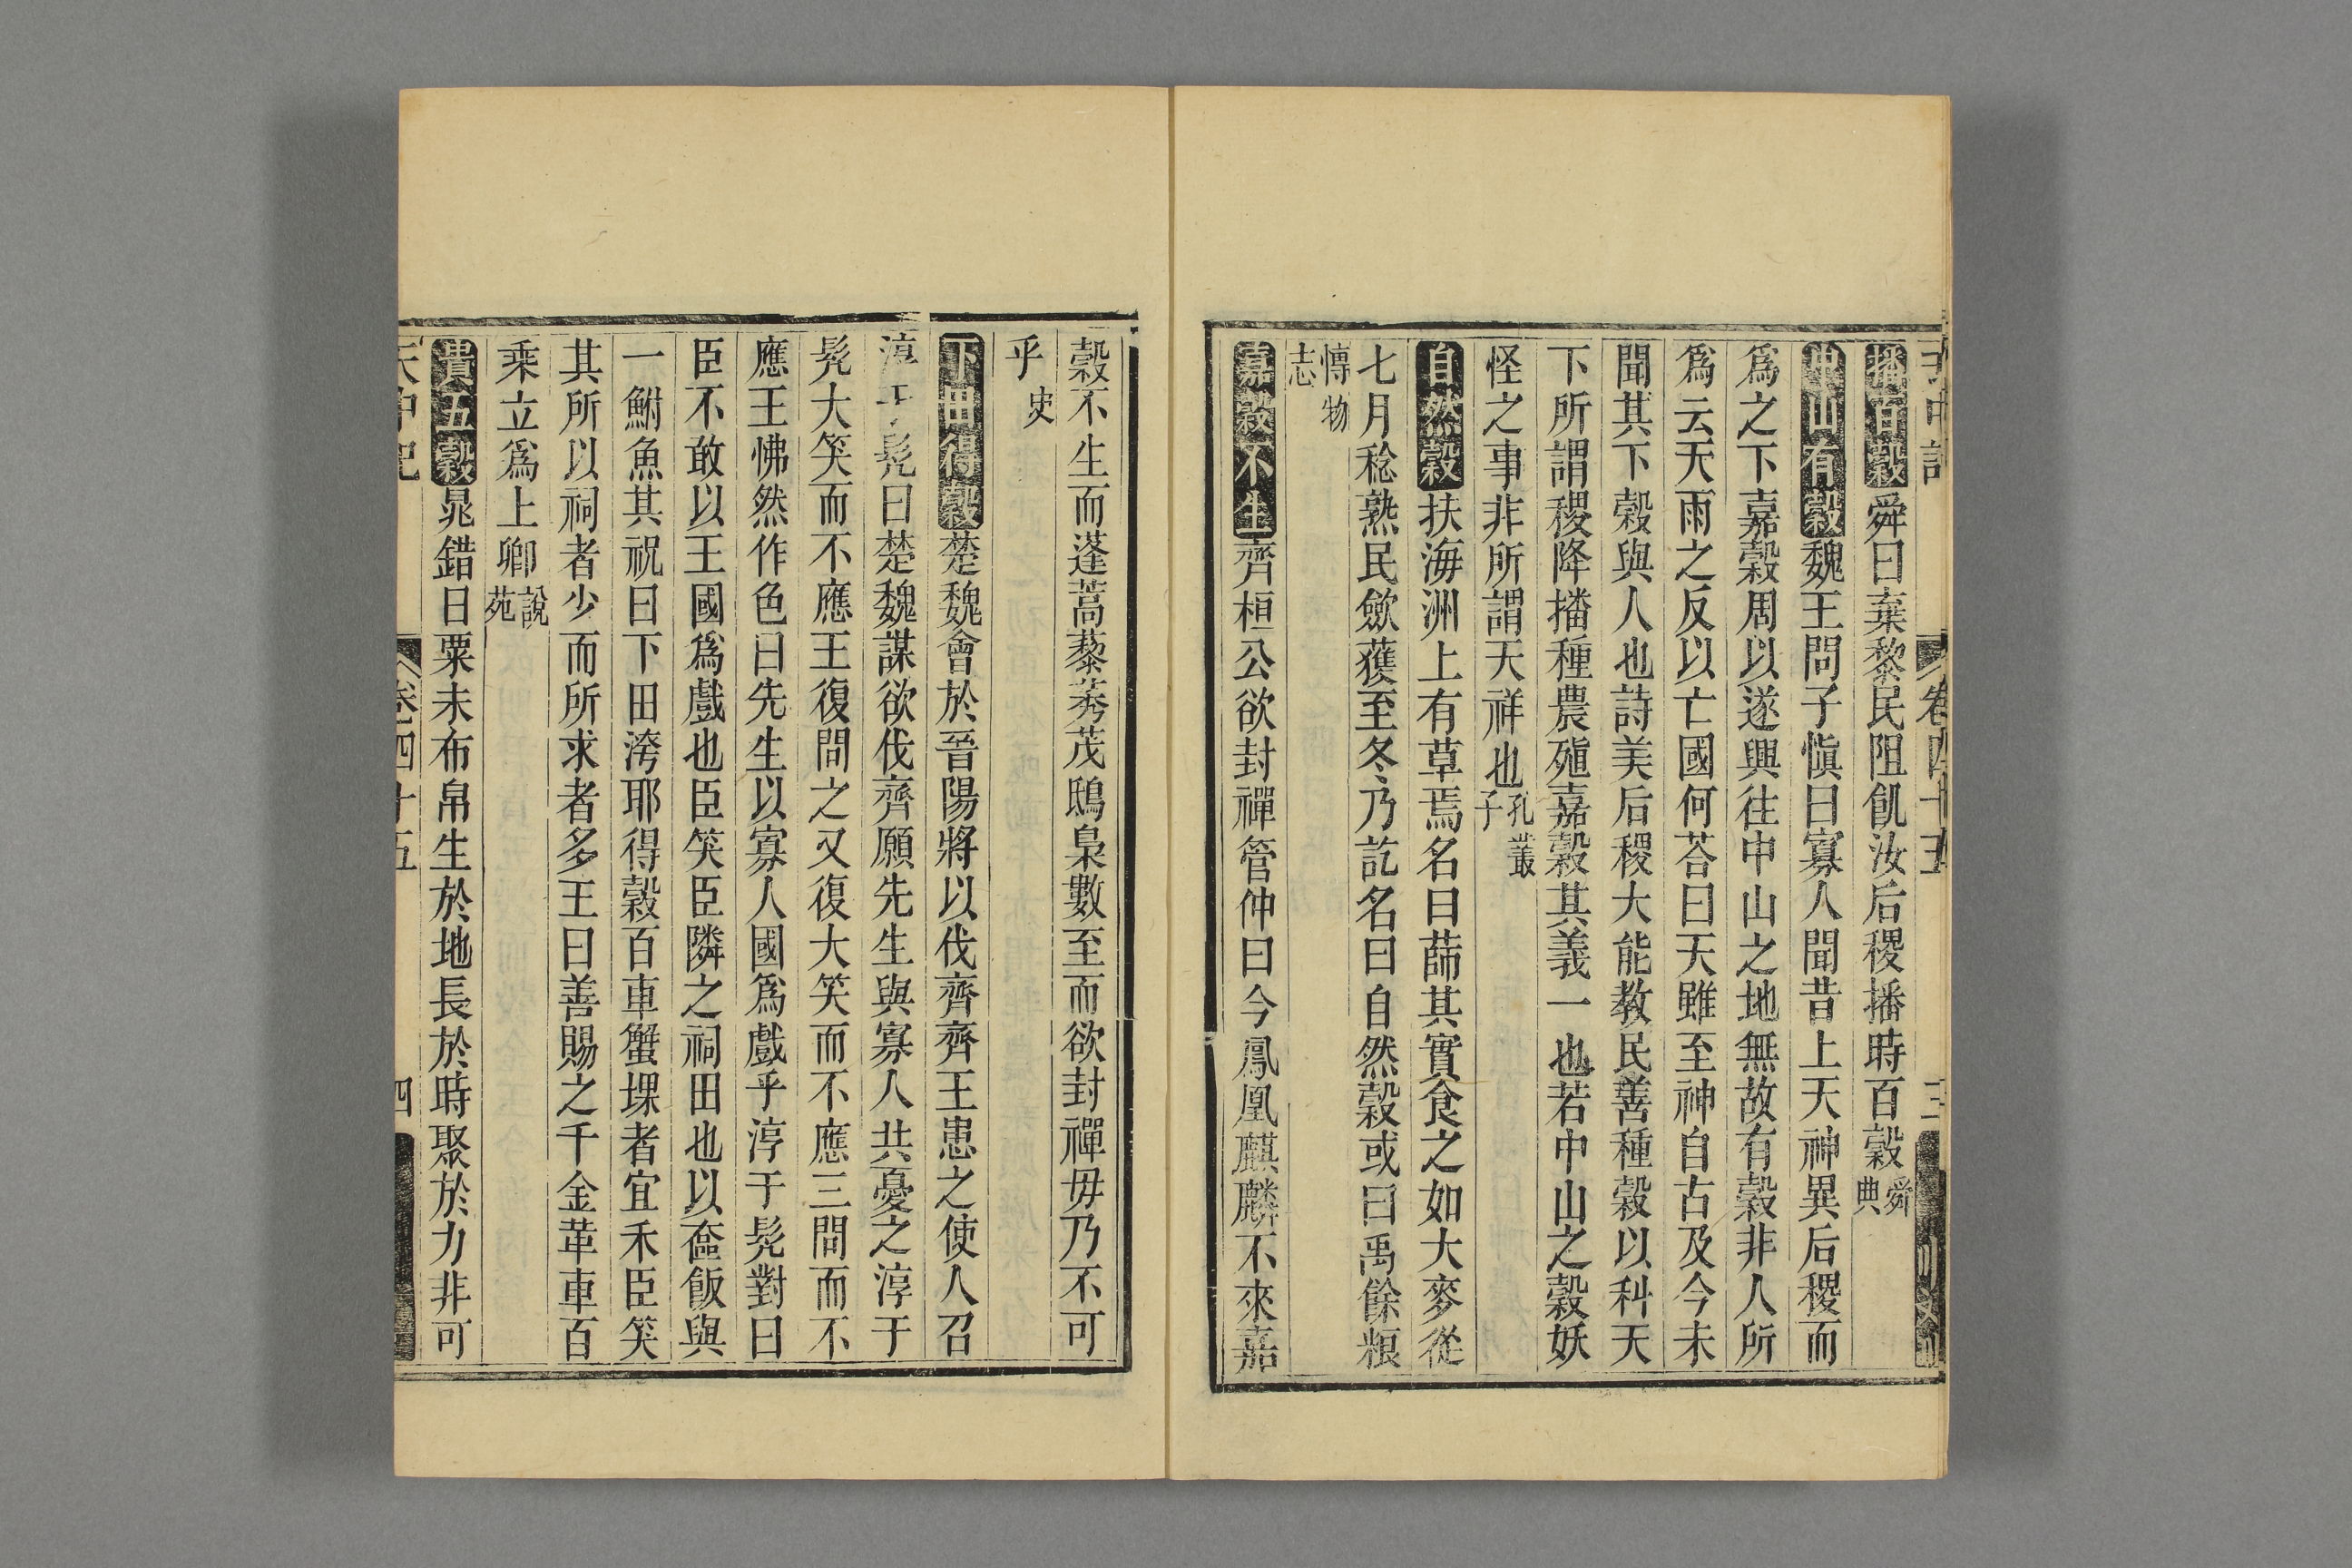 播百穀舜曰棄黎民阻飢汝后稷播時百穀舜典
中山有穀魏王問子愼曰寡人聞昔上天神異后稷而
爲之下嘉穀周以遂興往中山之地無故有穀非人所
爲云天雨之反以亡國何荅曰天雖至神自古及今未
聞其下穀與人也詩美后稷大能教民善種穀以利天
下所謂稷降播種農殖嘉穀其義一也若中山之穀妖
怪之事非所謂天祥也孔叢子
自然穀扶海洲上有草焉名曰蒒其實食之如大麥從
七月稔熟民斂穫至冬乃訖名曰自然穀或曰禹餘粮
博物志
嘉穀不生齊桓公欲封禪管仲曰今鳳凰麒麟不來嘉
穀不生而蓬蒿藜莠茂鴟梟數至而欲封禪毋乃不可
乎史
下田得穀楚魏會於晉陽將以伐齊齊王患之使人召
淳于髠曰楚魏謀欲伐齊願先生與寡人共憂之淳于
髠大笑而不應王復問之又復大笑而不應三問而不
應王怫然作色曰先生以寡人國爲戲乎淳于髠對曰
臣不敢以王國爲戲也臣笑臣隣之祠田也以奩飯與
一鮒魚其祝曰下田洿耶得穀百車蟹堁者宜禾臣笑
其所以祠者少而所求者多王曰善賜之千金革車百
乘立爲上卿說苑
貴五穀晁錯曰粟未布帛生於地長於時聚於力非可
天中記 卷四十五 四